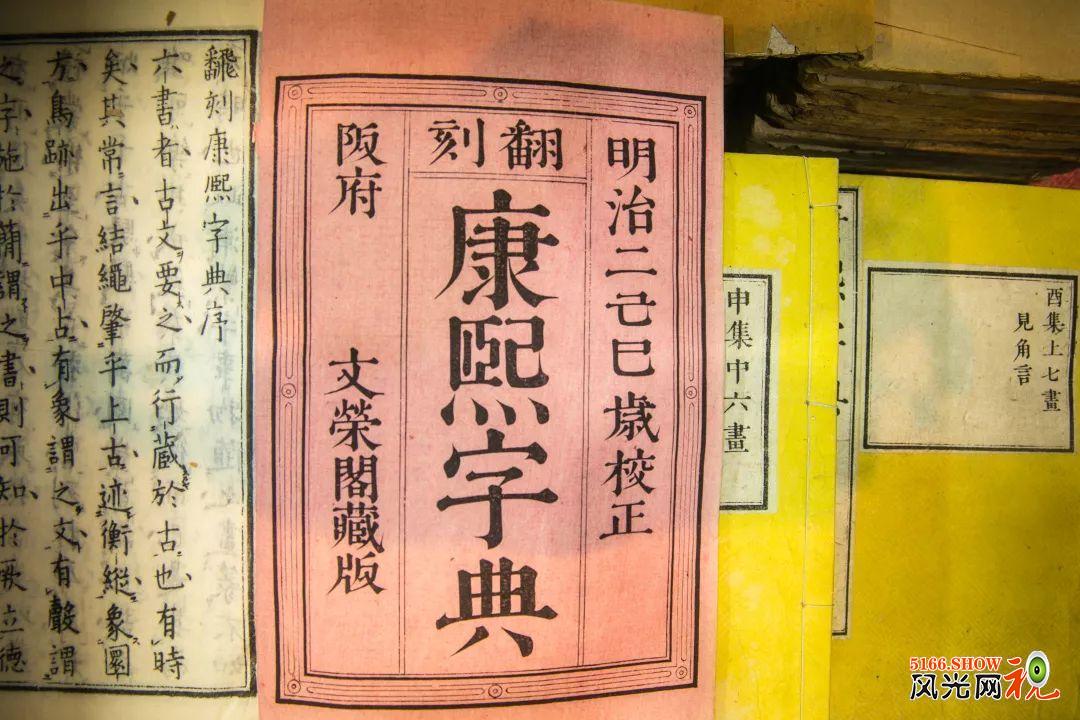 飜刻康熙字典序
六書者古文要之而行藏於古也有時
矣其常言結繩肇乎上古迹衡縱象圜
方鳥跡出乎中占有象謂之文有聲謂
之字施於簡謂之書則可知於厥立德
明治二己巳歳校正
翻刻
康熙字典
阪府 文榮閣藏版
申集中六畫
酉集上七畫
見角言
5166.SHOW
风光网视